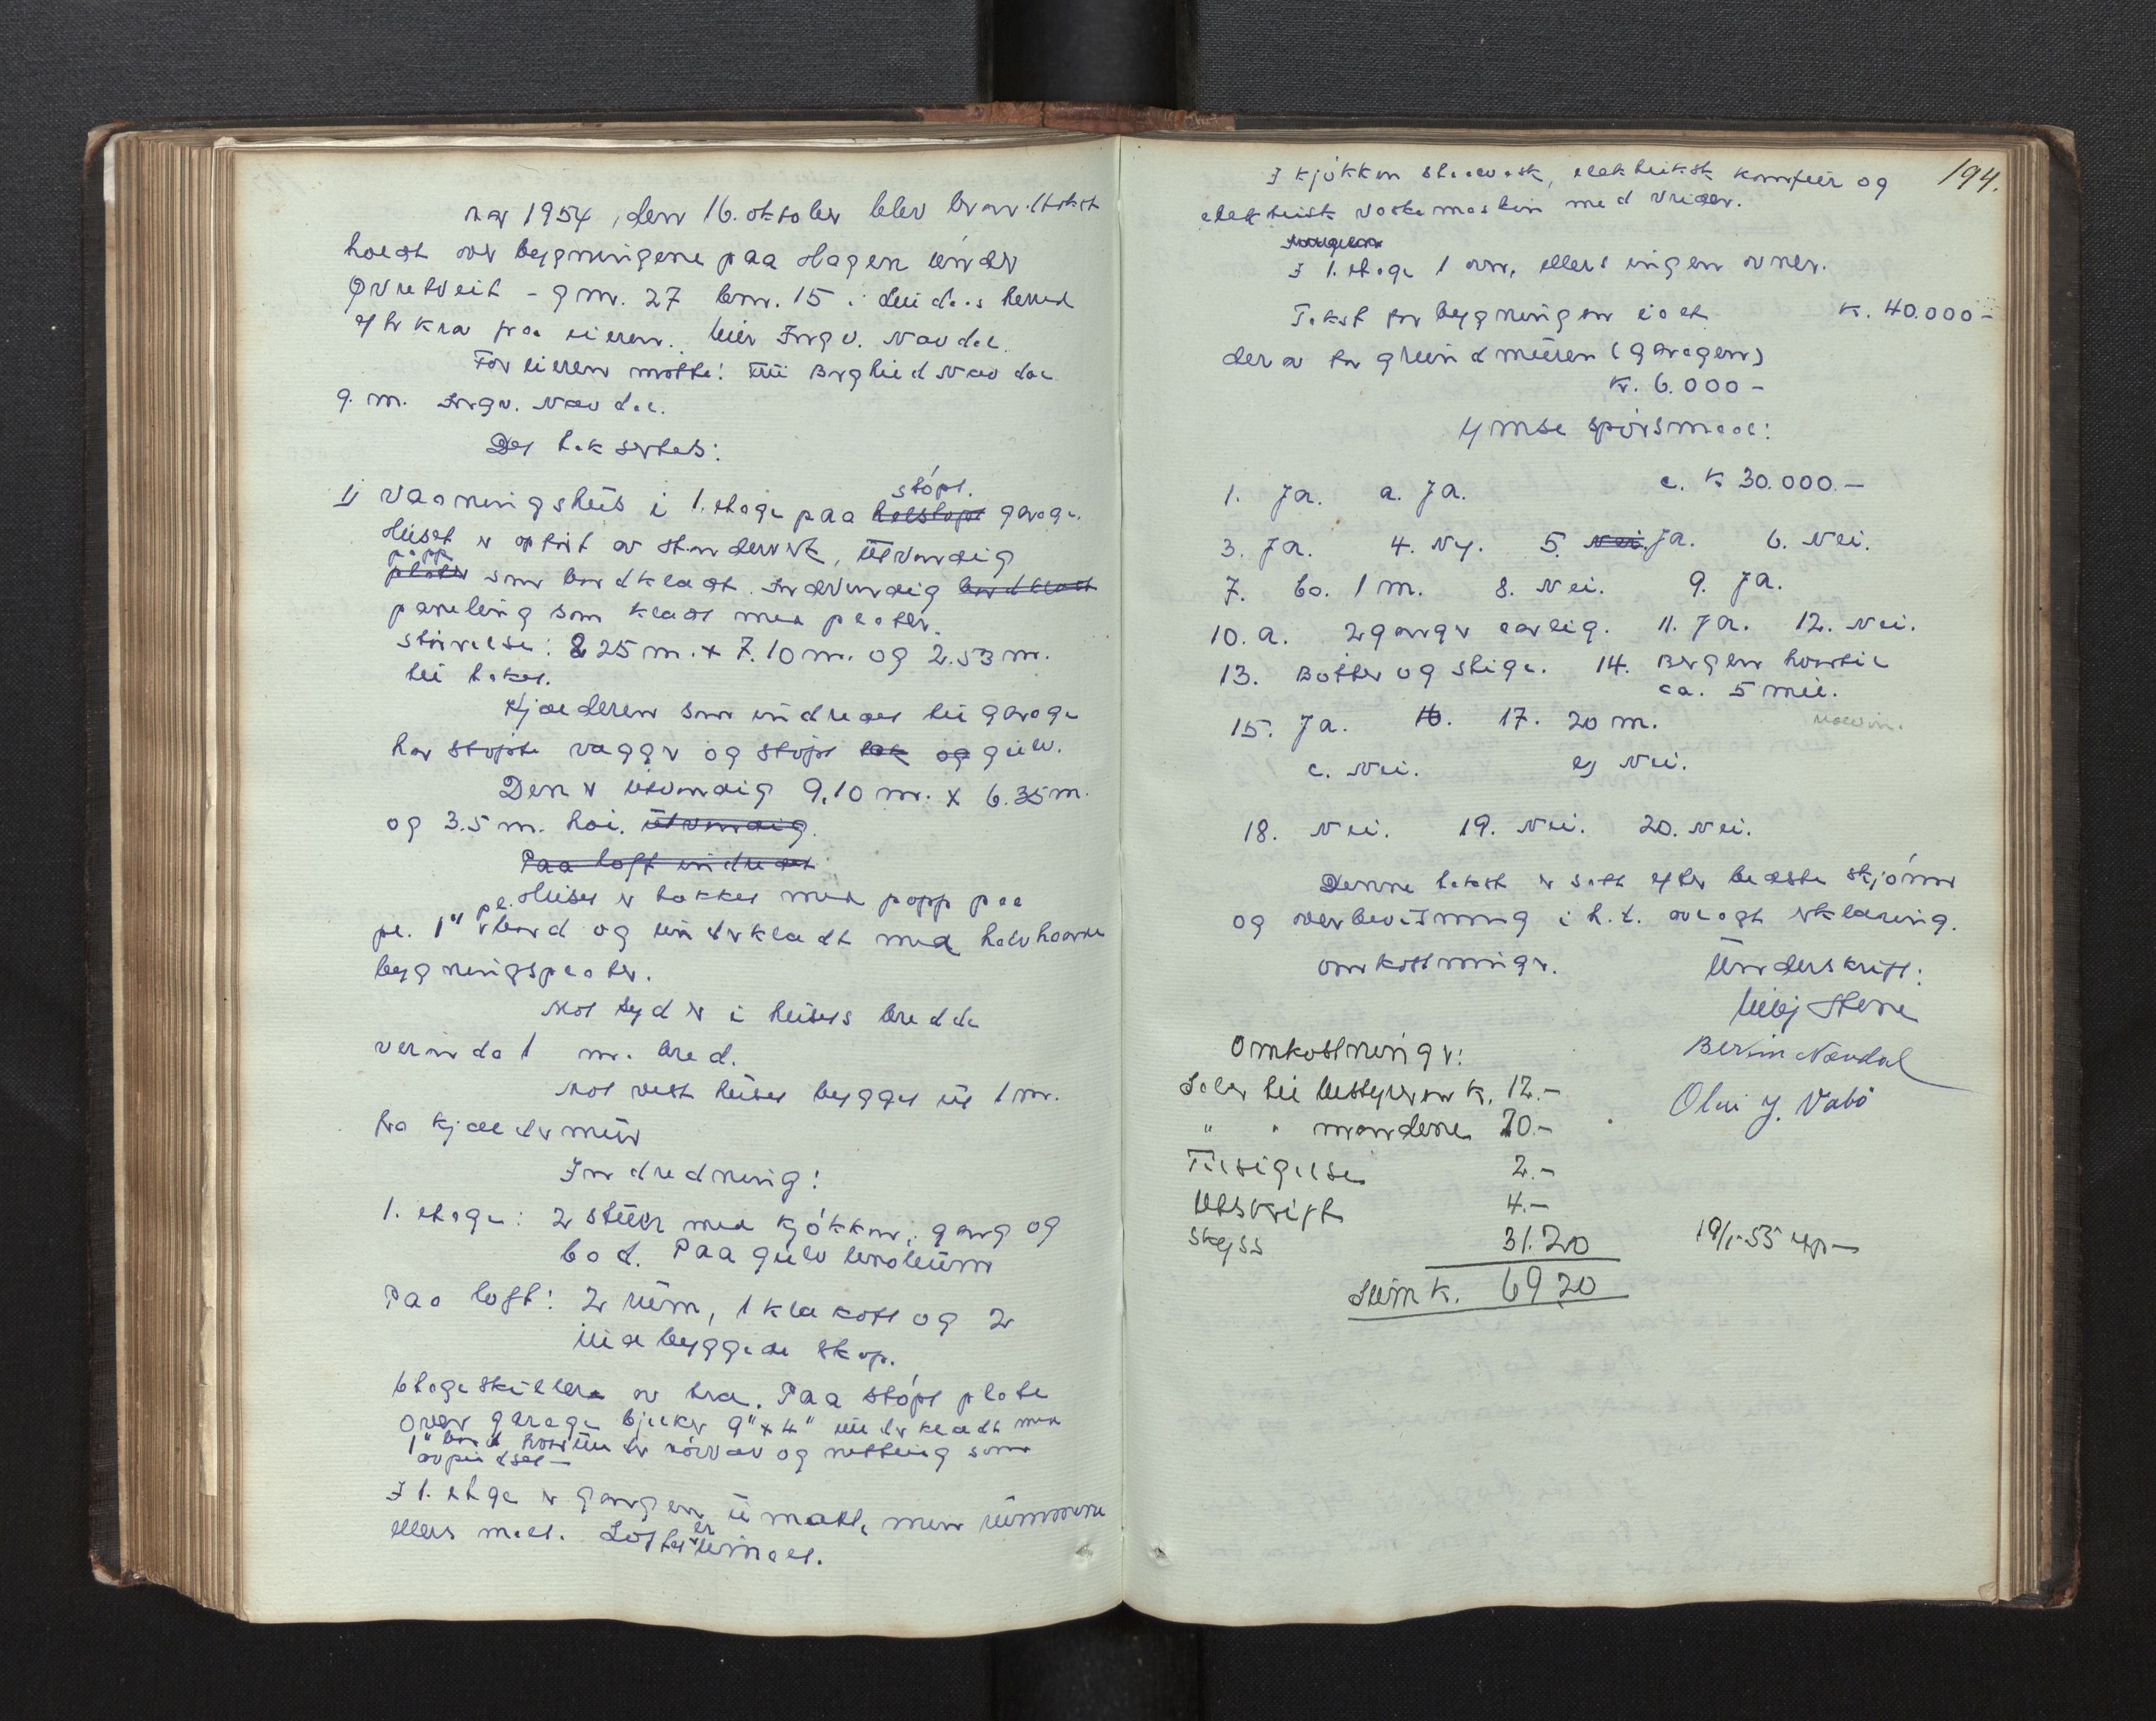 Aar 1954, den 16. oktober blev branntakst
holdt over bygningene paa Hagen under
Øvretveit - gnr. 27 bnr. 15 i herred
efter krav fra eieren. Ingv. Navdal.
For eieren møtte: Borghild Navdal
g. m. Ingv. Navdal.
Der taksertes:
støpt
1) Vaaningshus i 1. etage paa helstøpt garage.
Huset er opført av standerverk, utvendig
papp
plater som bordkladt. Indvendig bordkladt
paneling som kladt med plater.
Størrelse: 8 25 m. x 7.10 m. og 2.53 m.
til taket.
Kjælderen som indredet til garage
har støpte vægger og støpt tak og gulv.
Den er utvendig 9.10 m. x 6.35 m.
og 3.5 m. høi. utvendig.
Paa loft indredet
Huset er takket med papp paa
pl. 1" bord og underkladt med halvhaarde
bygningsplater.
Mot syd er i husets bredde
veranda 1 m. bred.
Mot vest huset bygget ut 1 m.
fra kjældermur
Indredning:
1. etage: 2 stuer med kjøkken, gang og
bod. Paa gulv linoleum
Paa loft: 2 rum, 1 klækott og 2
skap.
Etageskillere av træ. Paa støpt plate
over garage bjelker 9" x 4" underkladt med
1" bord, rørvæv og netting som
avpudset -
I 1. etage er gangen umalt, men rummene
er
ellers malt. Loftet umalt.
194.
I kjøkken staalvask, elektrisk komfur og
elektrisk vaskemaskin med vrider.
I 1. etage 1 ovn, ellers ingen ovner.
Takst for bygningen ialt k. 40.000 -
derav for grundmuren (garagen)
kr. 6.000 -
Ymse spørsmaal:
1. Ja. a. Ja. c. k 30.000.-
3. Ja. 4. Ny. 5. Nei. Ja. 6. Nei.
7. Ca. 1 m. 8. Nei. 9. Ja.
10. a. 2 ganger aarlig. 11. Ja. 12. Nei.
13. Bøtter og stige. 14. Bergen
ca. 5 mil.
15. Ja. 16. 17. 20 m.
c. Nei. e) Nei.
18. Nei. 19. Nei. 20. Nei.
Denne takst er satt efter bedste skjønn
og overbevisning i h.t. avlagt erklæring.
Omkostninger. Underskrift:
Berin Navdal
Olai J. Vabø
Omkostninger:
Salær til bestyreren k. 12.-
" " mændene 20.-
Tilsigelse 2.-
Utskrift 4.-
Skyss 31.20
19/1-55
Sum k. 69.20